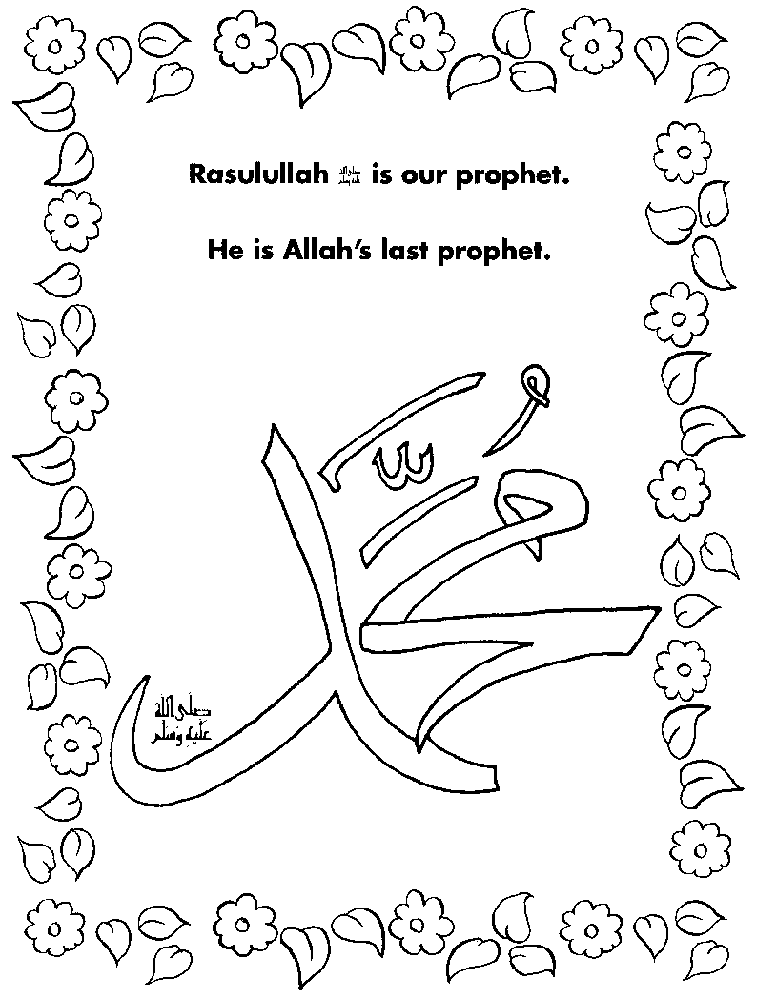 Rasulullah ﷺ is our prophet.
He is Allah's last prophet.
مُحَمَّد
صَلَّى اللَّهُ
عَلَيْهِ وَسَلَّم